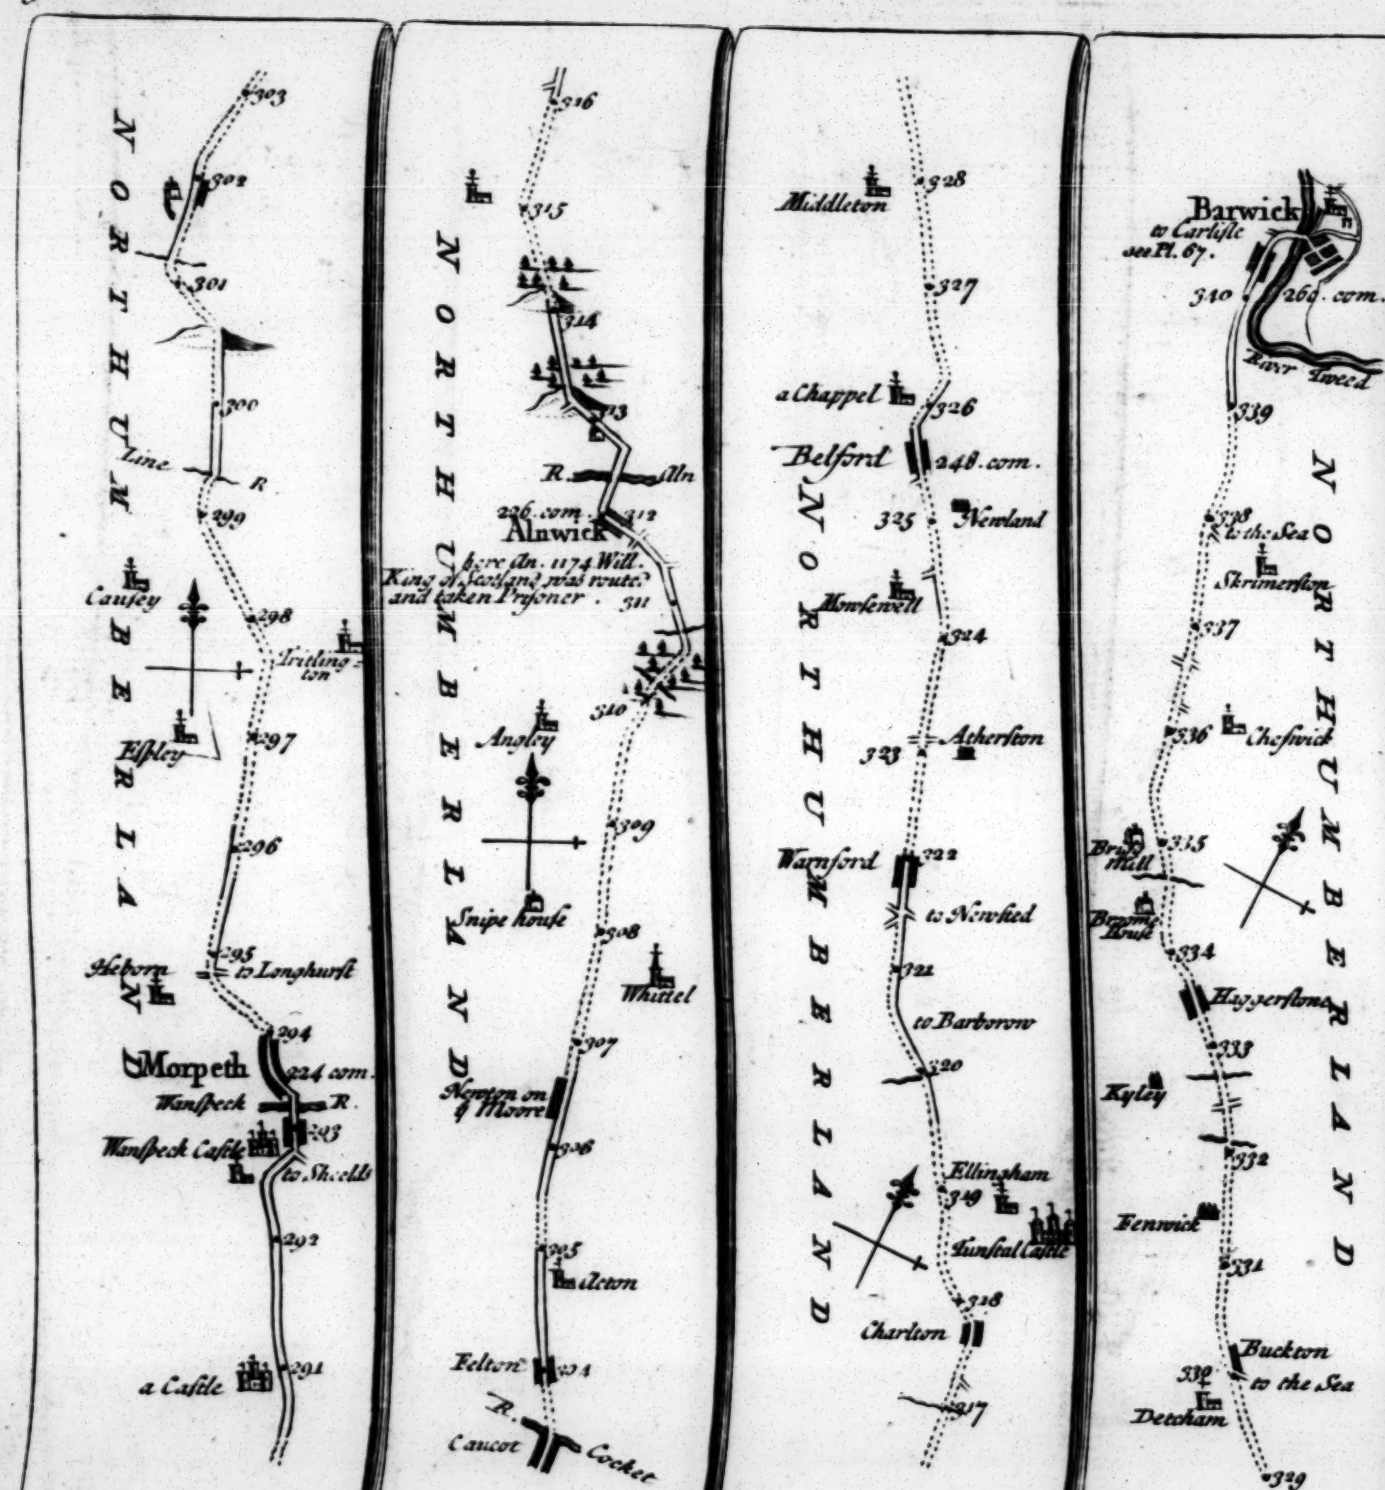 303
302
301
300
Line R
299
Causey
298
Tritling-
ton
297
Espley
296
295
Heborn to Longhurst
294
Morpeth
224 com.
Wanspeck R.
293
Wanspeck Castle
to Shields
292
291
a Castle
NORTHUMBERLAND
316
315
314
313
R. Aln
226 com. 312
Alnwick
here An. 1174 Will.
King of Scotland was route
and taken Prisoner.
311
310
Angley
309
Snipe house
308
Whittel
307
Newton on
y Moore
306
305
Acton
Felton 304
R.
Caucot Cocket
NORTHUMBERLAND
328
Middleton
327
a Chappel
326
Belford 248. com.
325 Newland
Mowsewell
324
Atherston
323
Warnford 322
to Newsted
321
to Barborow
320
Ellingham
319
Tunstal Castle
318
Charlton
317
NORTHUMBERLAND
Barwick
to Carlisle
see Pl. 67.
340 260. com.
River Tweed
339
338
to the Sea
Skrimerston
337
336 Cheswick
335
Mill
Broome
House
334
Haggerstone
333
Kyley
332
Fenwick
331
Buckton
330
to the Sea
Detcham
329
NORTHUMBERLAND